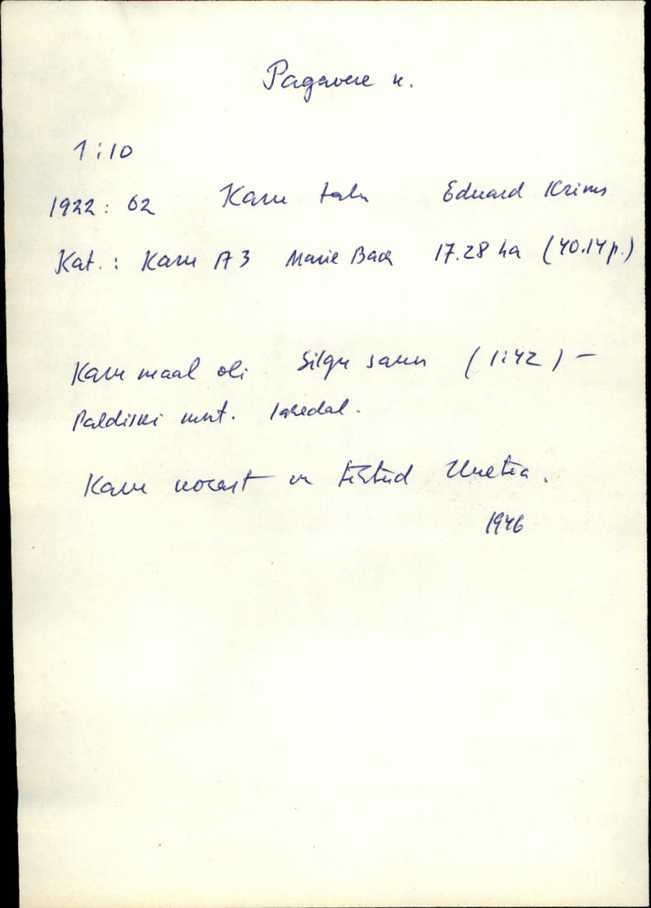 Pagavere k.
1:10
1922: 62 Karu talu Eduard Krims
Kat.: Karu A3 Marie Back 17.28 ha (40.14 p.)
Karu maal oli Silgu saun (1:42) –
Paldiski mnt. lähedal.
Karu on
1946